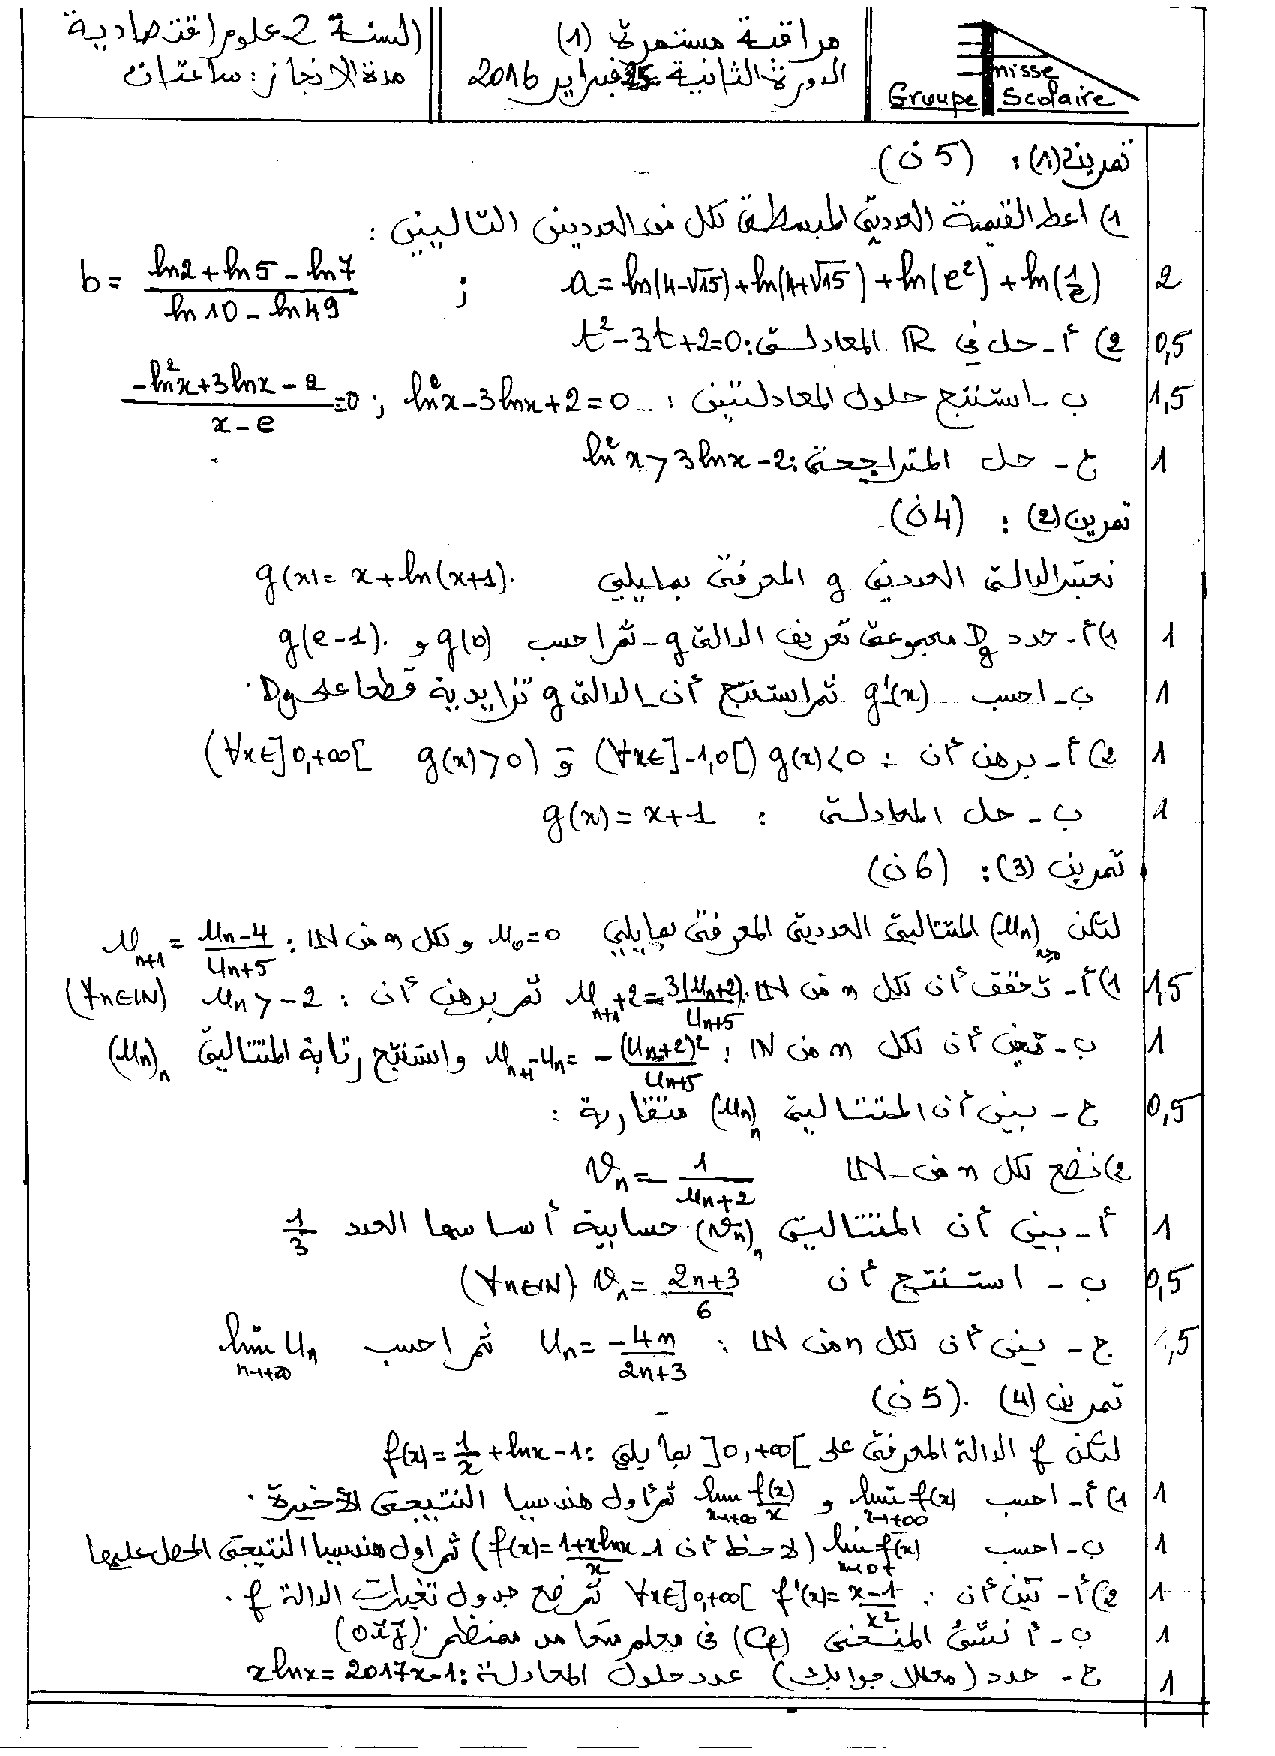 السنة 2 علوم اقتصادية
مدة الانجاز: ساعتان
مراقبة مستمرة (1)
الدورة الثانية 25 فبراير 2016
Groupe Scolaire Anisse
تمرين (1): (5 ن)
1) اعط القيمة العددية المبسطة لكل من العددين التاليين:
2 a = ln(4-√15) + ln(4+√15) + ln(e²) + ln(1/e) ; b = (ln2 + ln5 - ln7)/(ln10 - ln49)
0,5 2) أ- حل في IR المعادلة: t² - 3t + 2 = 0
1,5 ب- استنتج حلول المعادلتين: ln²x - 3lnx + 2 = 0 ; (-ln²x + 3lnx - 2)/(x - e) = 0
1 ج- حل المتراجحة: ln²x > 3lnx - 2
تمرين (2): (4 ن)
نعتبر الدالة العددية g المعرفة بمايلي g(x) = x + ln(x+1).
1 1) أ- حدد Dg مجموعة تعريف الدالة g - ثم احسب g(0) و g(e-1).
1 ب- احسب g'(x) ثم استنتج أن الدالة g تزايدية قطعا على Dg.
1 2) أ- برهن أن: (∀x∈]-1,0[) g(x)<0 و (∀x∈]0,+∞[ g(x)>0)
1 ب- حل المعادلة: g(x) = x+1
تمرين (3): (6 ن)
لتكن (Un)n≥0 المتتالية العددية المعرفة بمايلي U0=0 ولكل n من IN: Un+1 = (Un-4)/(Un+5)
1,5 1) أ- تحقق أن لكل n من IN. Un+1+2 = 3(Un+2)/(Un+5) ثم برهن أن: Un > -2 (∀n∈IN)
1 ب- تحقق أن لكل n من IN: Un+1-Un = -(Un+2)²/(Un+5) واستنتج رتابة المتتالية (Un)n
0,5 ج- بين أن المتتالية (Un)n متقاربة:
2) نضع لكل n من IN Vn = 1/(Un+2)
1 أ- بين أن المتتالية (Vn)n حسابية أساسها العدد 1/3
0,5 ب- استنتج أن Vn = (2n+3)/6 (∀n∈IN)
,5 ج- بين أن لكل n من IN: Un = -4n/(2n+3) ثم احسب lim Un n→+∞
تمرين (4). (5 ن)
لتكن f الدالة المعرفة على ]0,+∞[ بما يلي: f(x) = 1/x + lnx - 1
1 1) أ- احسب lim f(x) x→+∞ و lim f(x)/x x→+∞ ثم أول هندسيا النتيجة الأخيرة.
1 ب- احسب lim f(x) x→0+ (لاحظ أن f(x) = (1+xlnx)/x - 1) ثم اول هندسيا النتيجة المحصل عليها
1 2) أ- بين أن: f'(x) = (x-1)/x² ∀x∈]0,+∞[ ثم ضع جدول تغيرات الدالة f.
1 ب- أنشئ المنحنى (Cf) في معلم متعامد ممنظم. (o,i,j)
1 ج- حدد (معللا جوابك) عدد حلول المعادلة: xlnx = 2017x-1